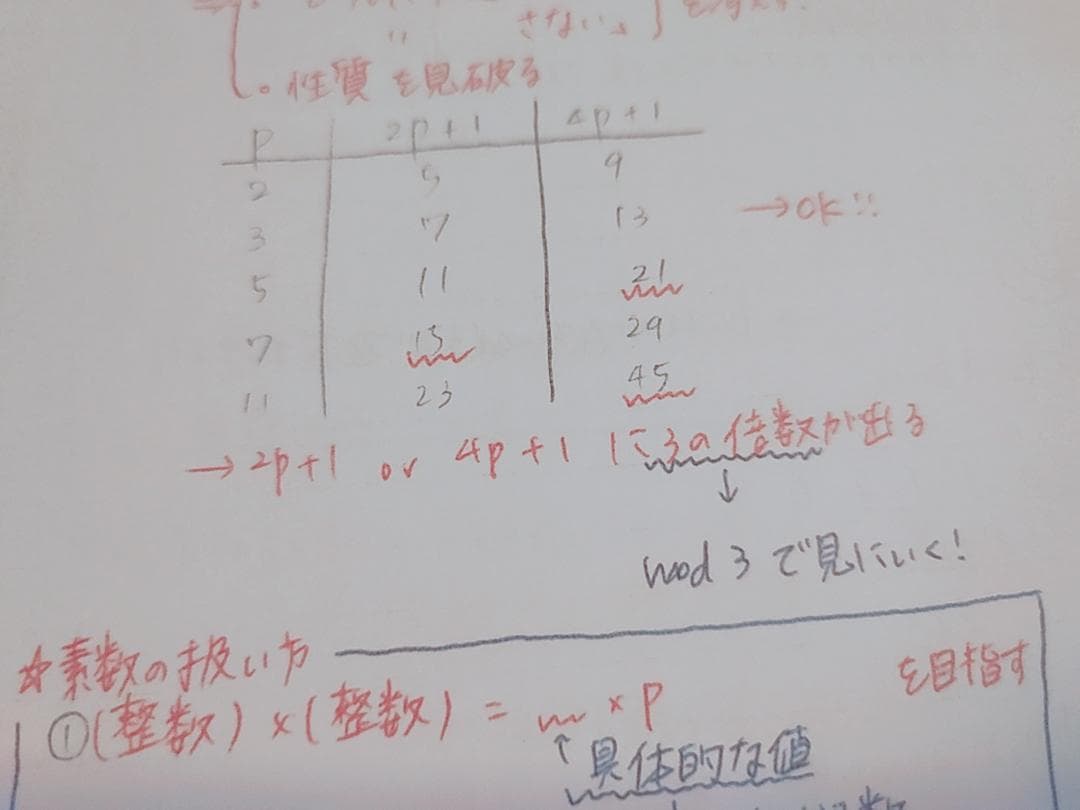 さない
。性質を見破る
P 2P+1 4P+1
2 5 9
3 7 13 →OK!!
5 11 21
7 15 29
11 23 45
→2P+1 or 4P+1 に3の倍数が出る
↓
mod 3 で見にいく!
☆素数の扱い方
を目指す
①(整数)×(整数) = 〰 × P
↑具体的な値